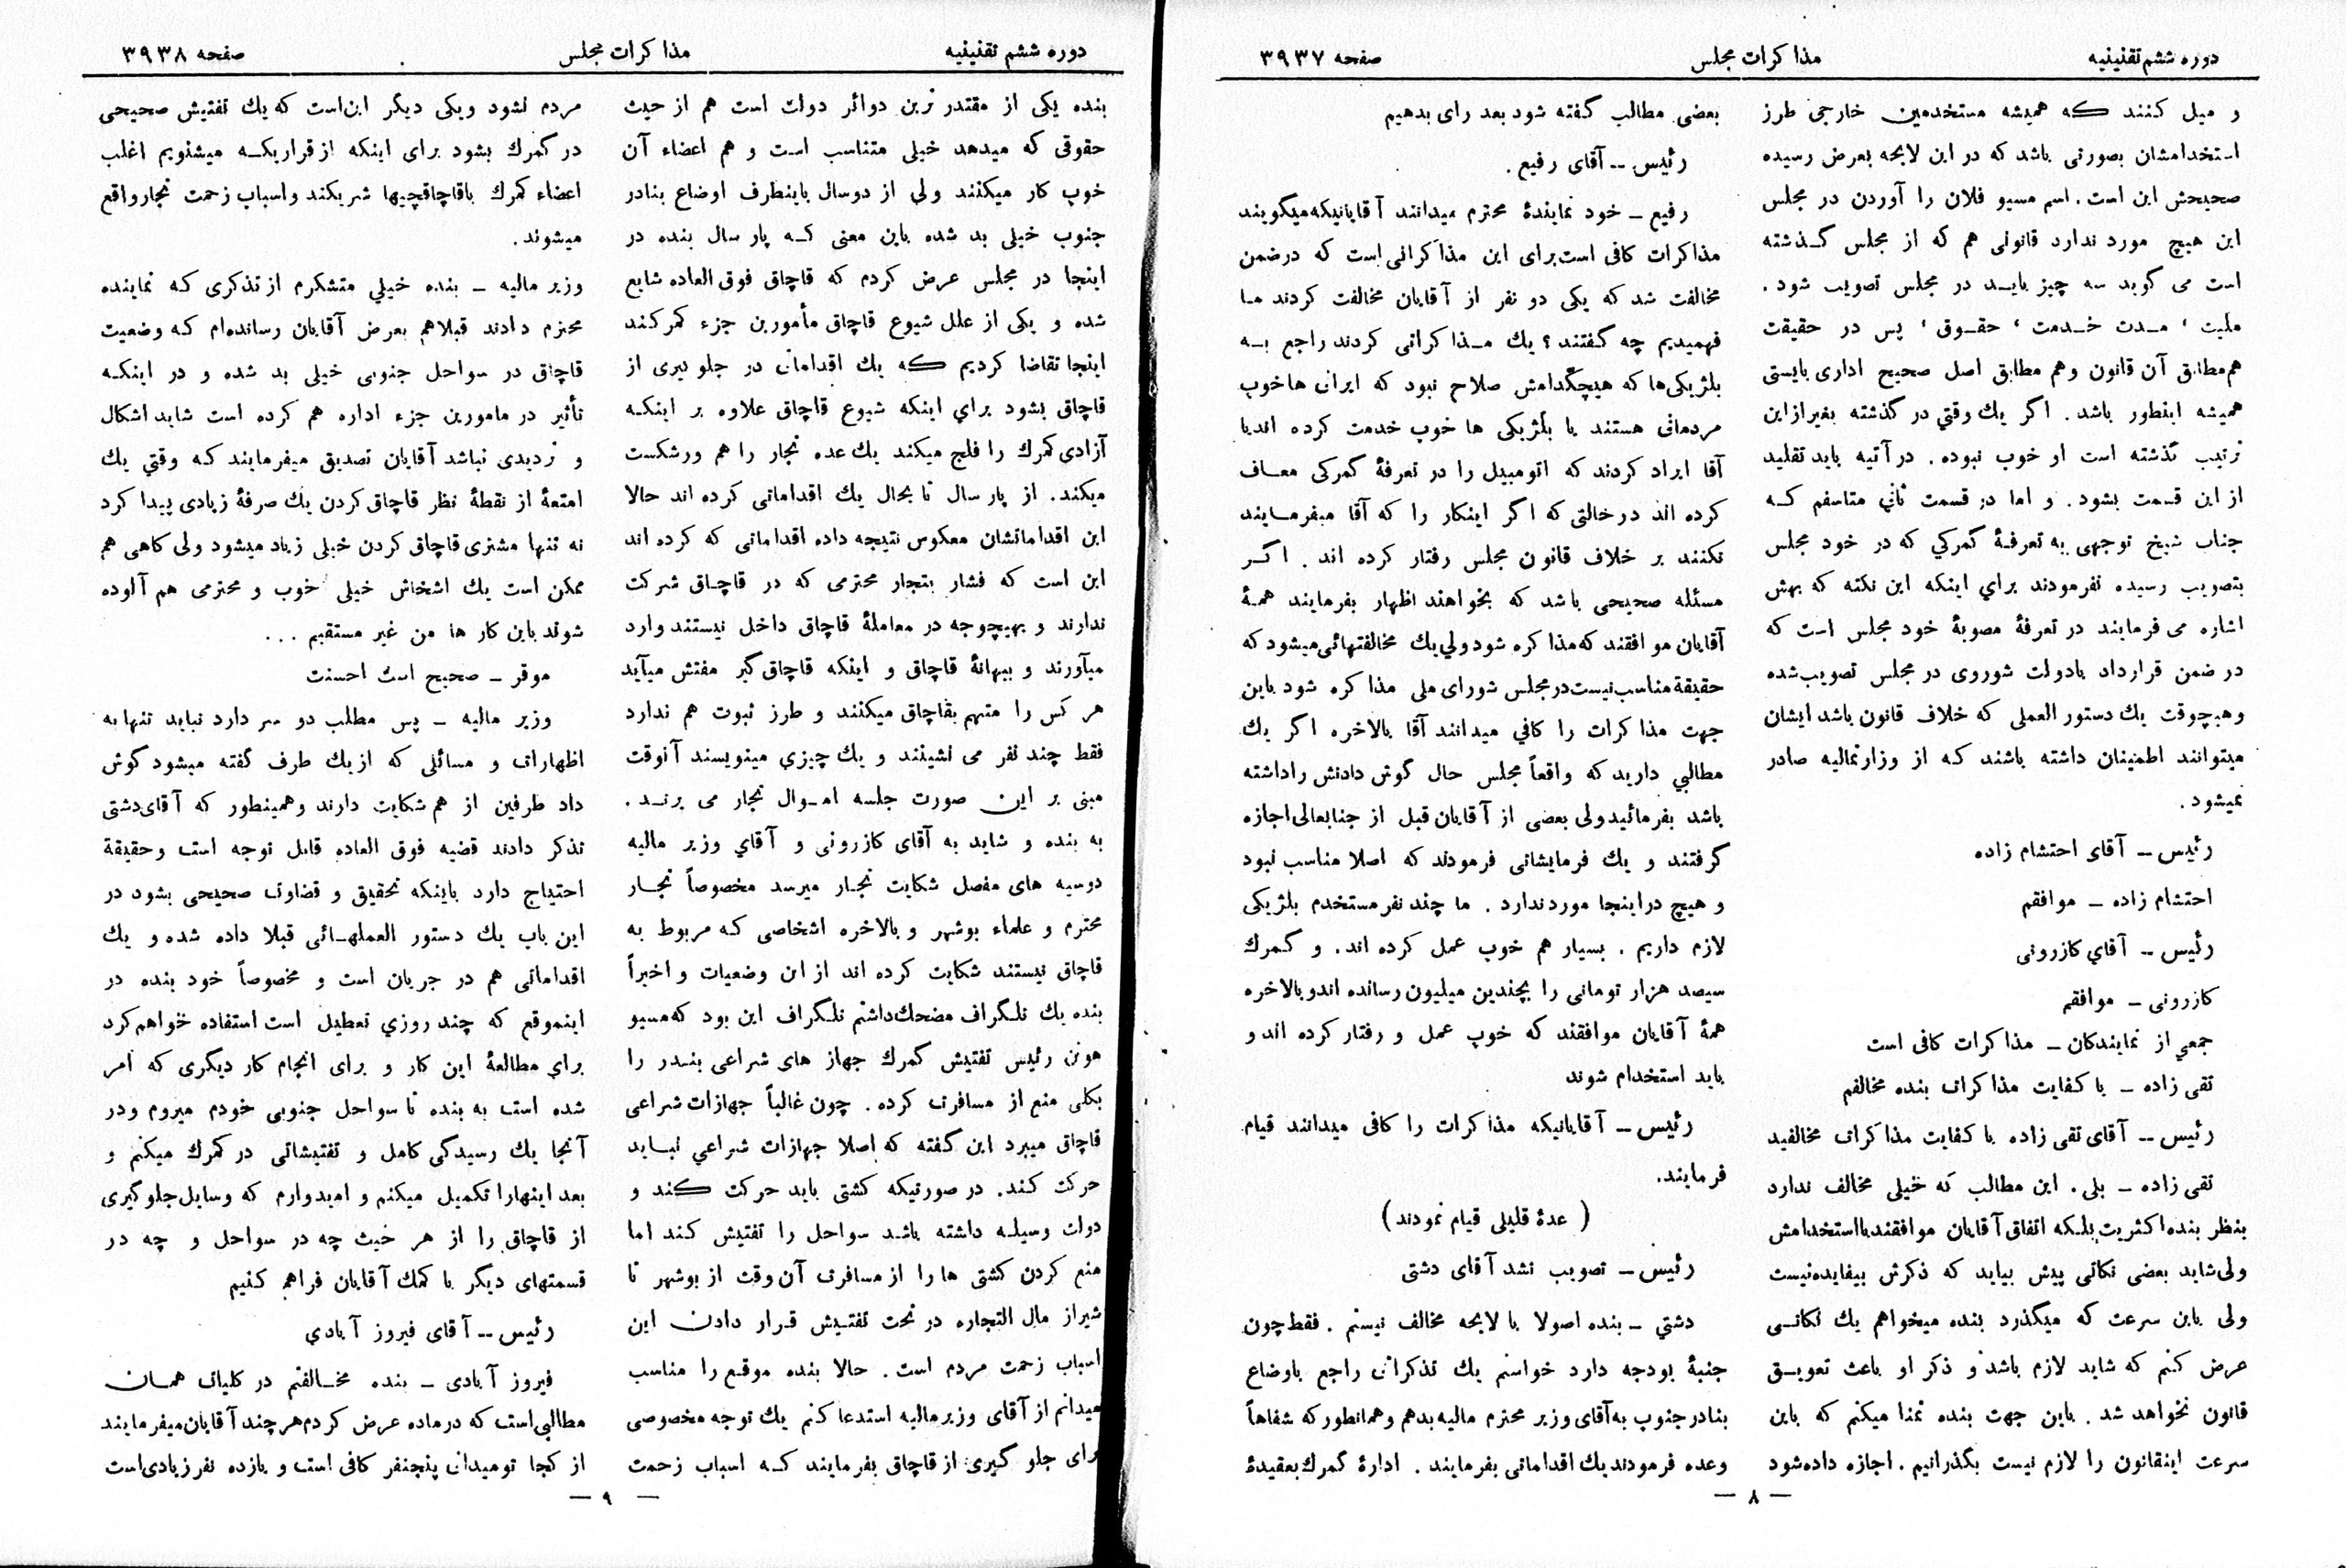 دوره ششم تقنینیه
مذاکرات مجلس
صفحه ۳۹۳۷
و میل کنند که همیشه مستخدمین خارجی طرز
استخدامشان بصورتی باشد که در این لایحه بعرض رسیده
صحیحش این است. اسم مسیو فلان را آوردن در مجلس
این هیچ مورد ندارد قانونی هم که از مجلس گذشته
است می گوید سه چیز باید در مجلس تصویب شود.
ملیت، مدت خدمت، حقوق، پس در حقیقت
هم مطابق آن قانون و هم مطابق اصل صحیح اداری بایستی
همیشه اینطور باشد. اگر یك وقتي در گذشته بغیر از این
ترتیب گذشته است او خوب نبوده. در آتیه باید تقلید
از این قسمت بشود. و اما در قسمت ثاني متاسفم که
جناب شیخ توجهی به تعرفهٔ گمرکي که در خود مجلس
بتصویب رسیده نفرمودند براي اینکه این نکته که بهش
اشاره می فرمایند در تعرفهٔ مصوبهٔ خود مجلس است که
در ضمن قرارداد با دولت شوروی در مجلس تصویب شده
و هیچوقت یك دستور العملی که خلاف قانون باشد ایشان
میتوانند اطمینان داشته باشند که از وزارتمالیه صادر
نمیشود.
رئیس -- آقای احتشام زاده
احتشام زاده - موافقم
رئیس -- آقاي کازرونی
کازرونی - موافقم
جمعي از نمایندگان - مذاکرات کافی است
تقی زاده - با کفایت مذاکرات بنده مخالفم
رئیس -- آقای تقی زاده با کفایت مذاکرات مخالفید
تقی زاده - بلی. این مطالب که خیلی مخالف ندارد
بنظر بنده اکثریت بلکه اتفاق آقایان موافقند با استخدامش
ولی شاید بعضی نکاتی پیش بیاید که ذکرش بیفایده نیست
ولی باین سرعت که میگذرد بنده میخواهم یك نکاتی
عرض کنم که شاید لازم باشد و ذکر او باعث تعویق
قانون نخواهد شد. باین جهت بنده تمنا میکنم که باین
سرعت اینقانون را لازم نیست بگذرانیم. اجازه داده شود
بعضی مطالب گفته شود بعد رای بدهیم
رئیس -- آقای رفیع.
رفیع - خود نمایندهٔ محترم میدانند آقایانیکه میگویند
مذاکرات کافی است برای این مذاکراتی است که در ضمن
مخالفت شد که یکی دو نفر از آقایان مخالفت کردند ما
فهمیدیم چه گفتند؟ یك مذاکراتی کردند راجع به
بلژیکی ها که هیچکدامش صلاح نبود که ایرانی ها خوب
مردمانی هستند یا بلژیکی ها خوب خدمت کرده اند یا
آقا ایراد کردند که اتومبیل را در تعرفهٔ گمرکی معاف
کرده اند در حالتی که اگر اینکار را که آقا میفرمایند
نکنند بر خلاف قانون مجلس رفتار کرده اند. اگر
مسئله صحیحی باشد که بخواهند اظهار بفرمایند همهٔ
آقایان موافقند که مذاکره شود ولي یك مخالفتهائی میشود که
حقیقة مناسب نیست در مجلس شورای ملی مذاکره شود باین
جهت مذاکرات را کافي میدانند آقا بالاخره اگر یك
مطالبي دارید که واقعاً مجلس حال گوش دادنش را داشته
باشد بفرمائید ولی بعضی از آقایان قبل از جنابعالی اجازه
گرفتند و یك فرمایشاتی فرمودند که اصلا مناسب نبود
و هیچ در اینجا مورد ندارد. ما چند نفر مستخدم بلژیکی
لازم داریم. بسیار هم خوب عمل کرده اند. و گمرك
سیصد هزار تومانی را بچندین میلیون رسانده اند و بالاخره
همهٔ آقایان موافقند که خوب عمل و رفتار کرده اند و
باید استخدام شوند
رئیس - آقایانیکه مذاکرات را کافی میدانند قیام
فرمایند.
(عدهٔ قلیلی قیام نمودند)
رئیس - تصویب نشد آقای دشتی
دشتي - بنده اصولا با لایحه مخالف نیستم. فقط چون
جنبهٔ بودجه دارد خواستم یك تذکراتی راجع باوضاع
بنادر جنوب به آقای وزیر محترم مالیه بدهم و همانطور که شفاهاً
وعده فرمودند یك اقداماتی بفرمایند. ادارهٔ گمرك بعقیدهٔ
— ۸ —
دوره ششم تقنینیه
مذاکرات مجلس
صفحه ۳۹۳۸
بنده یکی از مقتدر ترین دوائر دولت است هم از حیث
حقوقی که میدهد خیلی متناسب است و هم اعضاء آن
خوب کار میکنند ولی از دو سال باینطرف اوضاع بنادر
جنوب خیلی بد شده باین معنی که پار سال بنده در
اینجا در مجلس عرض کردم که قاچاق فوق العاده شایع
شده و یکی از علل شیوع قاچاق مأمورین جزء گمرکند
اینجا تقاضا کردیم که یك اقداماتی در جلوگیری از
قاچاق بشود براي اینکه شیوع قاچاق علاوه بر اینکه
آزادی گمرك را فلج میکند یك عده تجار را هم ورشکست
میکند. از پار سال تا بحال یك اقداماتی کرده اند حالا
این اقداماتشان معکوس نتیجه داده اقداماتی که کرده اند
این است که فشار بتجار محترمی که در قاچاق شرکت
ندارند و بهیچوجه در معاملهٔ قاچاق داخل نیستند وارد
میآورند و ببهانهٔ قاچاق و اینکه قاچاق گیر مفتش میآید
هر کس را متهم بقاچاق میکنند و طرز ثبوت هم ندارد
فقط چند نفر می نشینند و یك چیزي مینویسند آنوقت
مبنی بر این صورت جلسه اموال تجار می برند.
به بنده و شاید به آقای کازرونی و آقاي وزیر مالیه
دوسیه های مفصل شکایت تجار میرسد مخصوصاً تجار
محترم و علماء بوشهر و بالاخره اشخاصی که مربوط به
قاچاق نیستند شکایت کرده اند از این وضعیات و اخیراً
بنده یك تلگراف مضحك داشتم تلگراف این بود که مسیو
رئیس تفتیش گمرك جهاز های شراعی بندر را
بکلی منع از مسافرت کرده. چون غالباً جهازات شراعی
قاچاق میبرد این گفته که اصلا جهازات شراعي نباید
حرکت کند. در صورتیکه کشتی باید حرکت کند و
دولت وسیله داشته باشد سواحل را تفتیش کند اما
منع کردن کشتی ها را از مسافرت آن وقت از بوشهر تا
شیراز مال التجاره در تحت تفتیش قرار دادن این
اسباب زحمت مردم است. حالا بنده موقع را مناسب
میدانم از آقای وزیر مالیه استدعا کنم یك توجه مخصوصی
برای جلو گیری از قاچاق بفرمایند که اسباب زحمت
مردم نشود و یکی دیگر این است که یك تفتیش صحیحی
در گمرك بشود برای اینکه از قراریکه میشنویم اغلب
اعضاء گمرك با قاچاقچیها شریکند و اسباب زحمت تجار واقع
میشوند.
وزیر مالیه - بنده خیلي متشکرم از تذکری که نماینده
محترم دادند قبلا هم بعرض آقایان رسانده ام که وضعیت
قاچاق در سواحل جنوبی خیلی بد شده و در اینکه
تأثیر در مامورین جزء اداره هم کرده است شاید اشکال
و تردیدی نباشد آقایان تصدیق میفرمایند که وقتي یك
امتعهٔ از نقطهٔ نظر قاچاق کردن یك صرفهٔ زیادی پیدا کرد
نه تنها مشتری قاچاق کردن خیلی زیاد میشود ولی گاهی هم
ممکن است یك اشخاص خیلی خوب و محترمی هم آلوده
شوند باین کار ها من غیر مستقیم ...
موقر - صحیح است احسنت
وزیر مالیه - پس مطلب دو سر دارد نباید تنها به
اظهارات و مسائلی که از یك طرف گفته میشود گوش
داد طرفین از هم شکایت دارند و همینطور که آقای دشتی
تذکر دادند قضیه فوق العاده قابل توجه است و حقیقة
احتیاج دارد باینکه تحقیق و قضاوت صحیحی بشود در
این باب یك دستور العملهائی قبلا داده شده و یك
اقداماتی هم در جریان است و مخصوصاً خود بنده در
اینموقع که چند روزي تعطیل است استفاده خواهم کرد
براي مطالعهٔ این کار و برای انجام کار دیگری که امر
شده است به بنده تا سواحل جنوبی خودم میروم و در
آنجا یك رسیدگی کامل و تفتیشاتی در گمرك میکنم و
بعد اینها را تکمیل میکنم و امیدوارم که وسایل جلوگیری
از قاچاق را از هر حیث چه در سواحل و چه در
قسمتهای دیگر با کمك آقایان فراهم کنیم
رئیس -- آقای فیروز آبادي
فیروز آبادی - بنده مخالفتم در کلیات همان
مطالبی است که در ماده عرض کردم هر چند آقایان میفرمایند
از کجا تو میدانی پنجنفر کافی است و یازده نفر زیادی است
— ۹ —